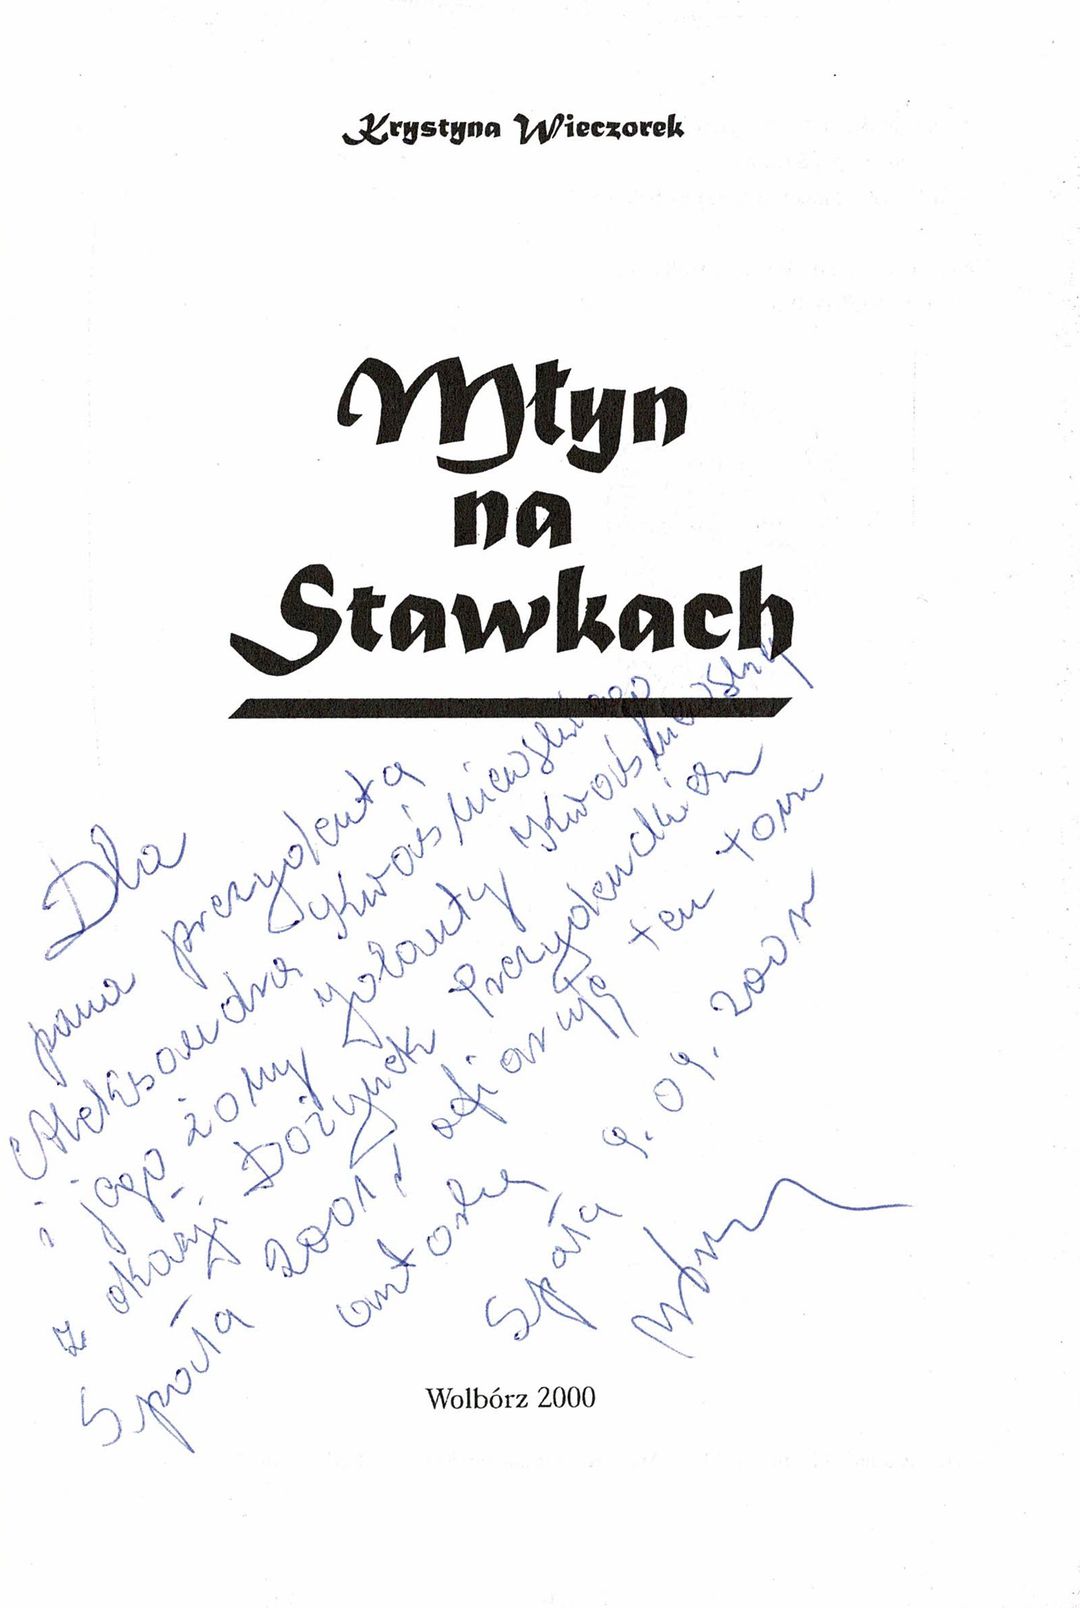 Krystyna Wieczorek
Młyn
na
Stawkach
Dla
pana prezydenta
Aleksandra Kwaśniewskiego
i jego żony Jolanty Kwaśniewskiej
z okazji Dożynek Prezydenckich
Spała 2001 ofiaruję ten tom
autorka
Spała 9.09.2001
Wolbórz 2000